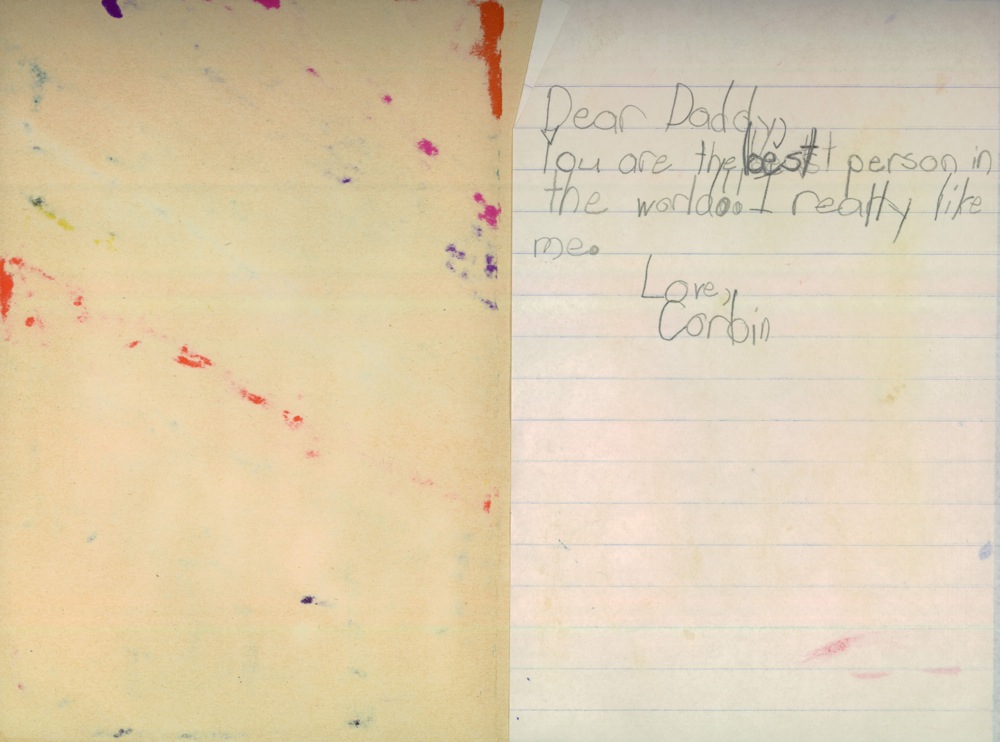 Dear Daddy,
You are the best person in
the world!! I really like
me.
Love,
Corbin